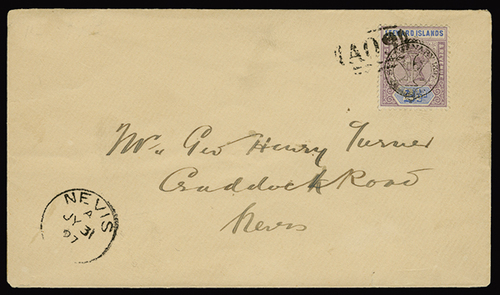 LEEWARD ISLANDS
A09
Mr. Geo Henry Turner
Craddock Road
Nevis
NEVIS
A
JY 31
97